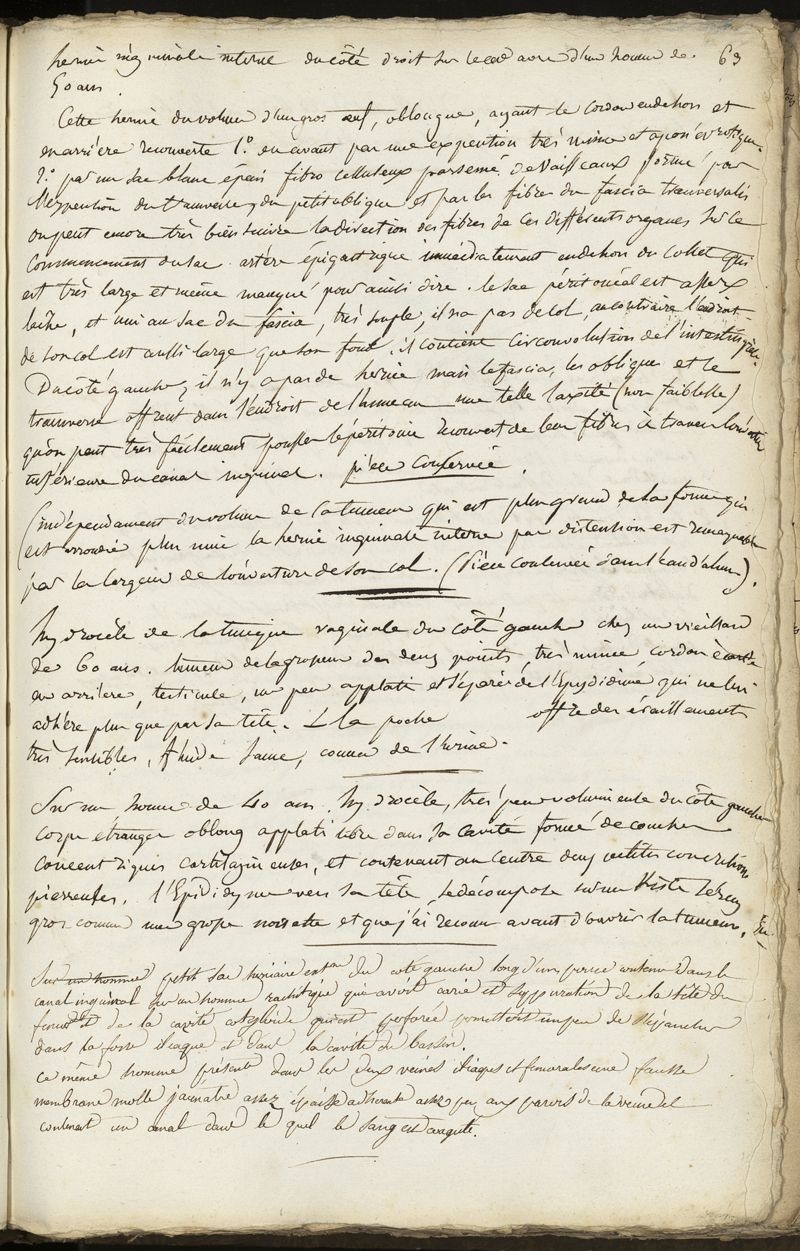 hernie inguinale interne du côté droit sur le cadavre d'un homme de 63
50 ans.
Cette hernie du volume d'un gros œuf, oblongue, ayant le cordon en dehors et
en arrière recouverte 1.° en avant par une expention très mince et aponévrotique
2.° par un sac blanc épais fibro celluleux parsemé de vaisseaux formé par
l'expention du transverse, du petit oblique et par les fibres du fascia transversalis
on peut encore très bien suivre la direction des fibres de ces différents organes sur le
commencement du sac. artère épigastrique immédiatement en dehors du collet qui
est très large et même manqué pour ainsi dire. le sac péritonéal est assez
lache, et uni au sac du fascia, très souple, il n'a pas de col, au contraire l'endroit
de son col est aussi large que son fond. il contient circonvolution de l'intestin
Du côté gauche, il n'y a pas de hernie mais le fascia, les obliques et le
transverse offrent dans l'endroit de l'anneau une telle laxité (non faiblesse)
qu'on peut très facilement pousser le péritoine recouvert de leur fibres à travers
inférieure du canal inguinal. pièce conservée.
(indépendament du volume de la tumeur qui est plus grand de la forme qui
est arrondie plus unie la hernie inguinale interne par distention est remarquable
par la largeur de l'ouverture de son col. (Pièce conservée dans l'eau d'alun).
hydrocèle de la tunique vaginale du côté gauche chez un vieillard
de 60 ans. tumeur de la grosseur des deux points, très mince, cordon
en arrière, testicule, un peu applati et séparé de l'Epydidime qui ne lui
adhère plus que par sa tête. La poche offre des éraillements
très sensibles, fluide jaune, comme de l'urine.
Sur un homme de 40 ans. hydrocèle, très peu volumineuse du côté gauche
corps étranger oblong applati libre dans sa cavité formé de couches
concentriques cartilagineuses, et contenant au centre deux petites concrétions
pierreuses. l'Epididyme vers sa tête, se décompose sur un Kiste
gros comme une grosse noisette et que j'ai reconnu avant d'ouvrir la tumeur.
Sur un homme petit sac herniaire ext.ne du coté gauche long d'un pouce contenu dans le
canal inguinal sur un homme rachitique qui avoit carie et suppuration de la tête du
femur et de la cavité cotyloïde qui est perforée permettoit au pus de s'épancher
dans la fosse iliaque et dans la cavité du bassin.
ce même homme présente dans les deux veines iliaques et femorales une fausse
membrane molle jaunâtre assez épaisse adhérente assez peu aux parois de la veine et
contenant un canal dans le quel le sang est coagulé.